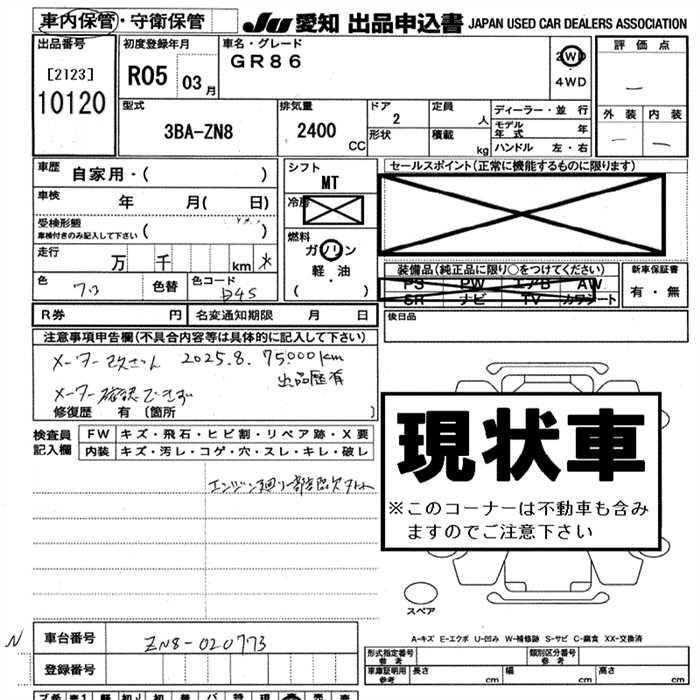 車内保管・守衛保管
JU 愛知 出品申込書 JAPAN USED CAR DEALERS ASSOCIATION
出品番号
[2123]
10120
初度登録年月
R05 03月
車名・グレード
GR86
2WD
4WD
評価点
型式
3BA-ZN8
排気量
2400 CC
ドア
2
形状
定員 人
積載 kg
ディーラー・並行
モデル年式 年
ハンドル 左・右
外装 内装
車歴
自家用・( )
車検 年 月( 日)
受検形態
車検付きのみ記入して下さい ( )
走行 万 千 km
色 色替 色コード
D4S
シフト
MT
冷房
燃料
ガソリン
軽・油
( )
セールスポイント(正常に機能するものに限ります)
装備品(純正品に限り○をつけてください)
PS PW エアB AW
SR ナビ TV カワシート
新車保証書
有・無
R券 円 名変通知期限 月 日
後日品
注意事項申告欄(不具合内容等は具体的に記入して下さい)
メーター改ざん 2025.8. 75000km
出品歴有
メーター確認できず
修復歴 有 〔箇所 〕
検査員記入欄
FW キズ・飛石・ヒビ割・リペア跡・X要
内装 キズ・汚レ・コゲ・穴・スレ・キレ・破レ
エンジン廻り一部部品欠
現状車
※このコーナーは不動車も含み
ますのでご注意下さい
スペア
A-キズ E-エクボ U-凹み W-補修跡 S-サビ C-腐食 XX-交換済
N
車台番号 ZN8-020773
登録番号
形式指定番号
参考
類別区分番号
参考
車庫証明用
参考
長さ cm 幅 cm 高さ cm